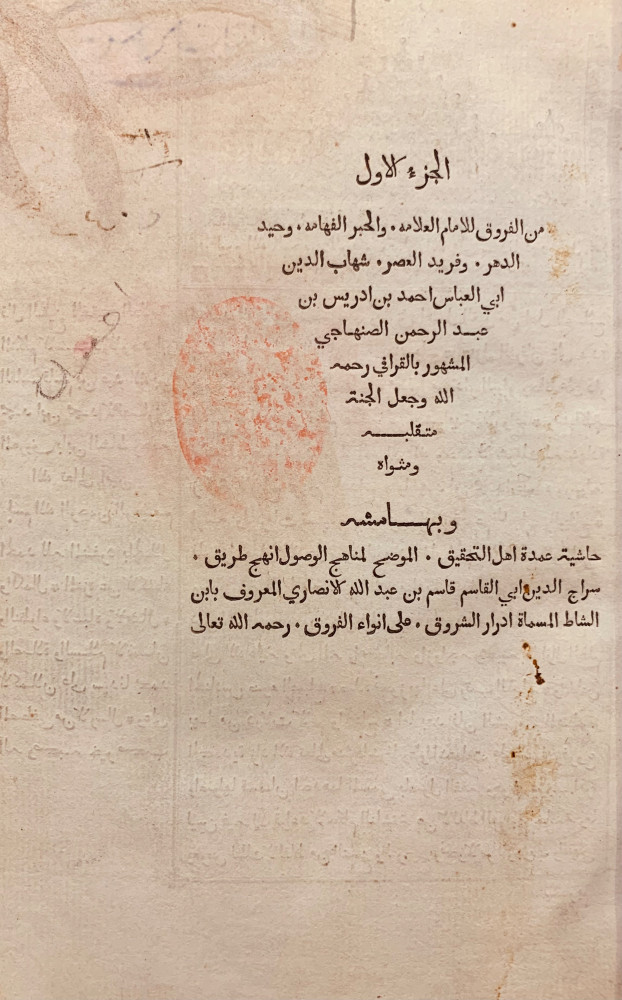 الجزء الاول
من الفروق للامام العلامه • والحبر الفهامه • وحيد
الدهر • وفريد العصر • شهاب الدين
ابي العباس احمد بن ادريس بن
عبد الرحمن الصنهاجي
المشهور بالقرافي رحمه
الله وجعل الجنة
متقلبه
ومثواه
وبهامشه
حاشية عمدة اهل التحقيق • الموضح لمناهج الوصول انهج طريق •
سراج الدين ابي القاسم قاسم بن عبد الله الانصاري المعروف بابن
الشاط المسماة ادرار الشروق • على انواء الفروق • رحمه الله تعالى